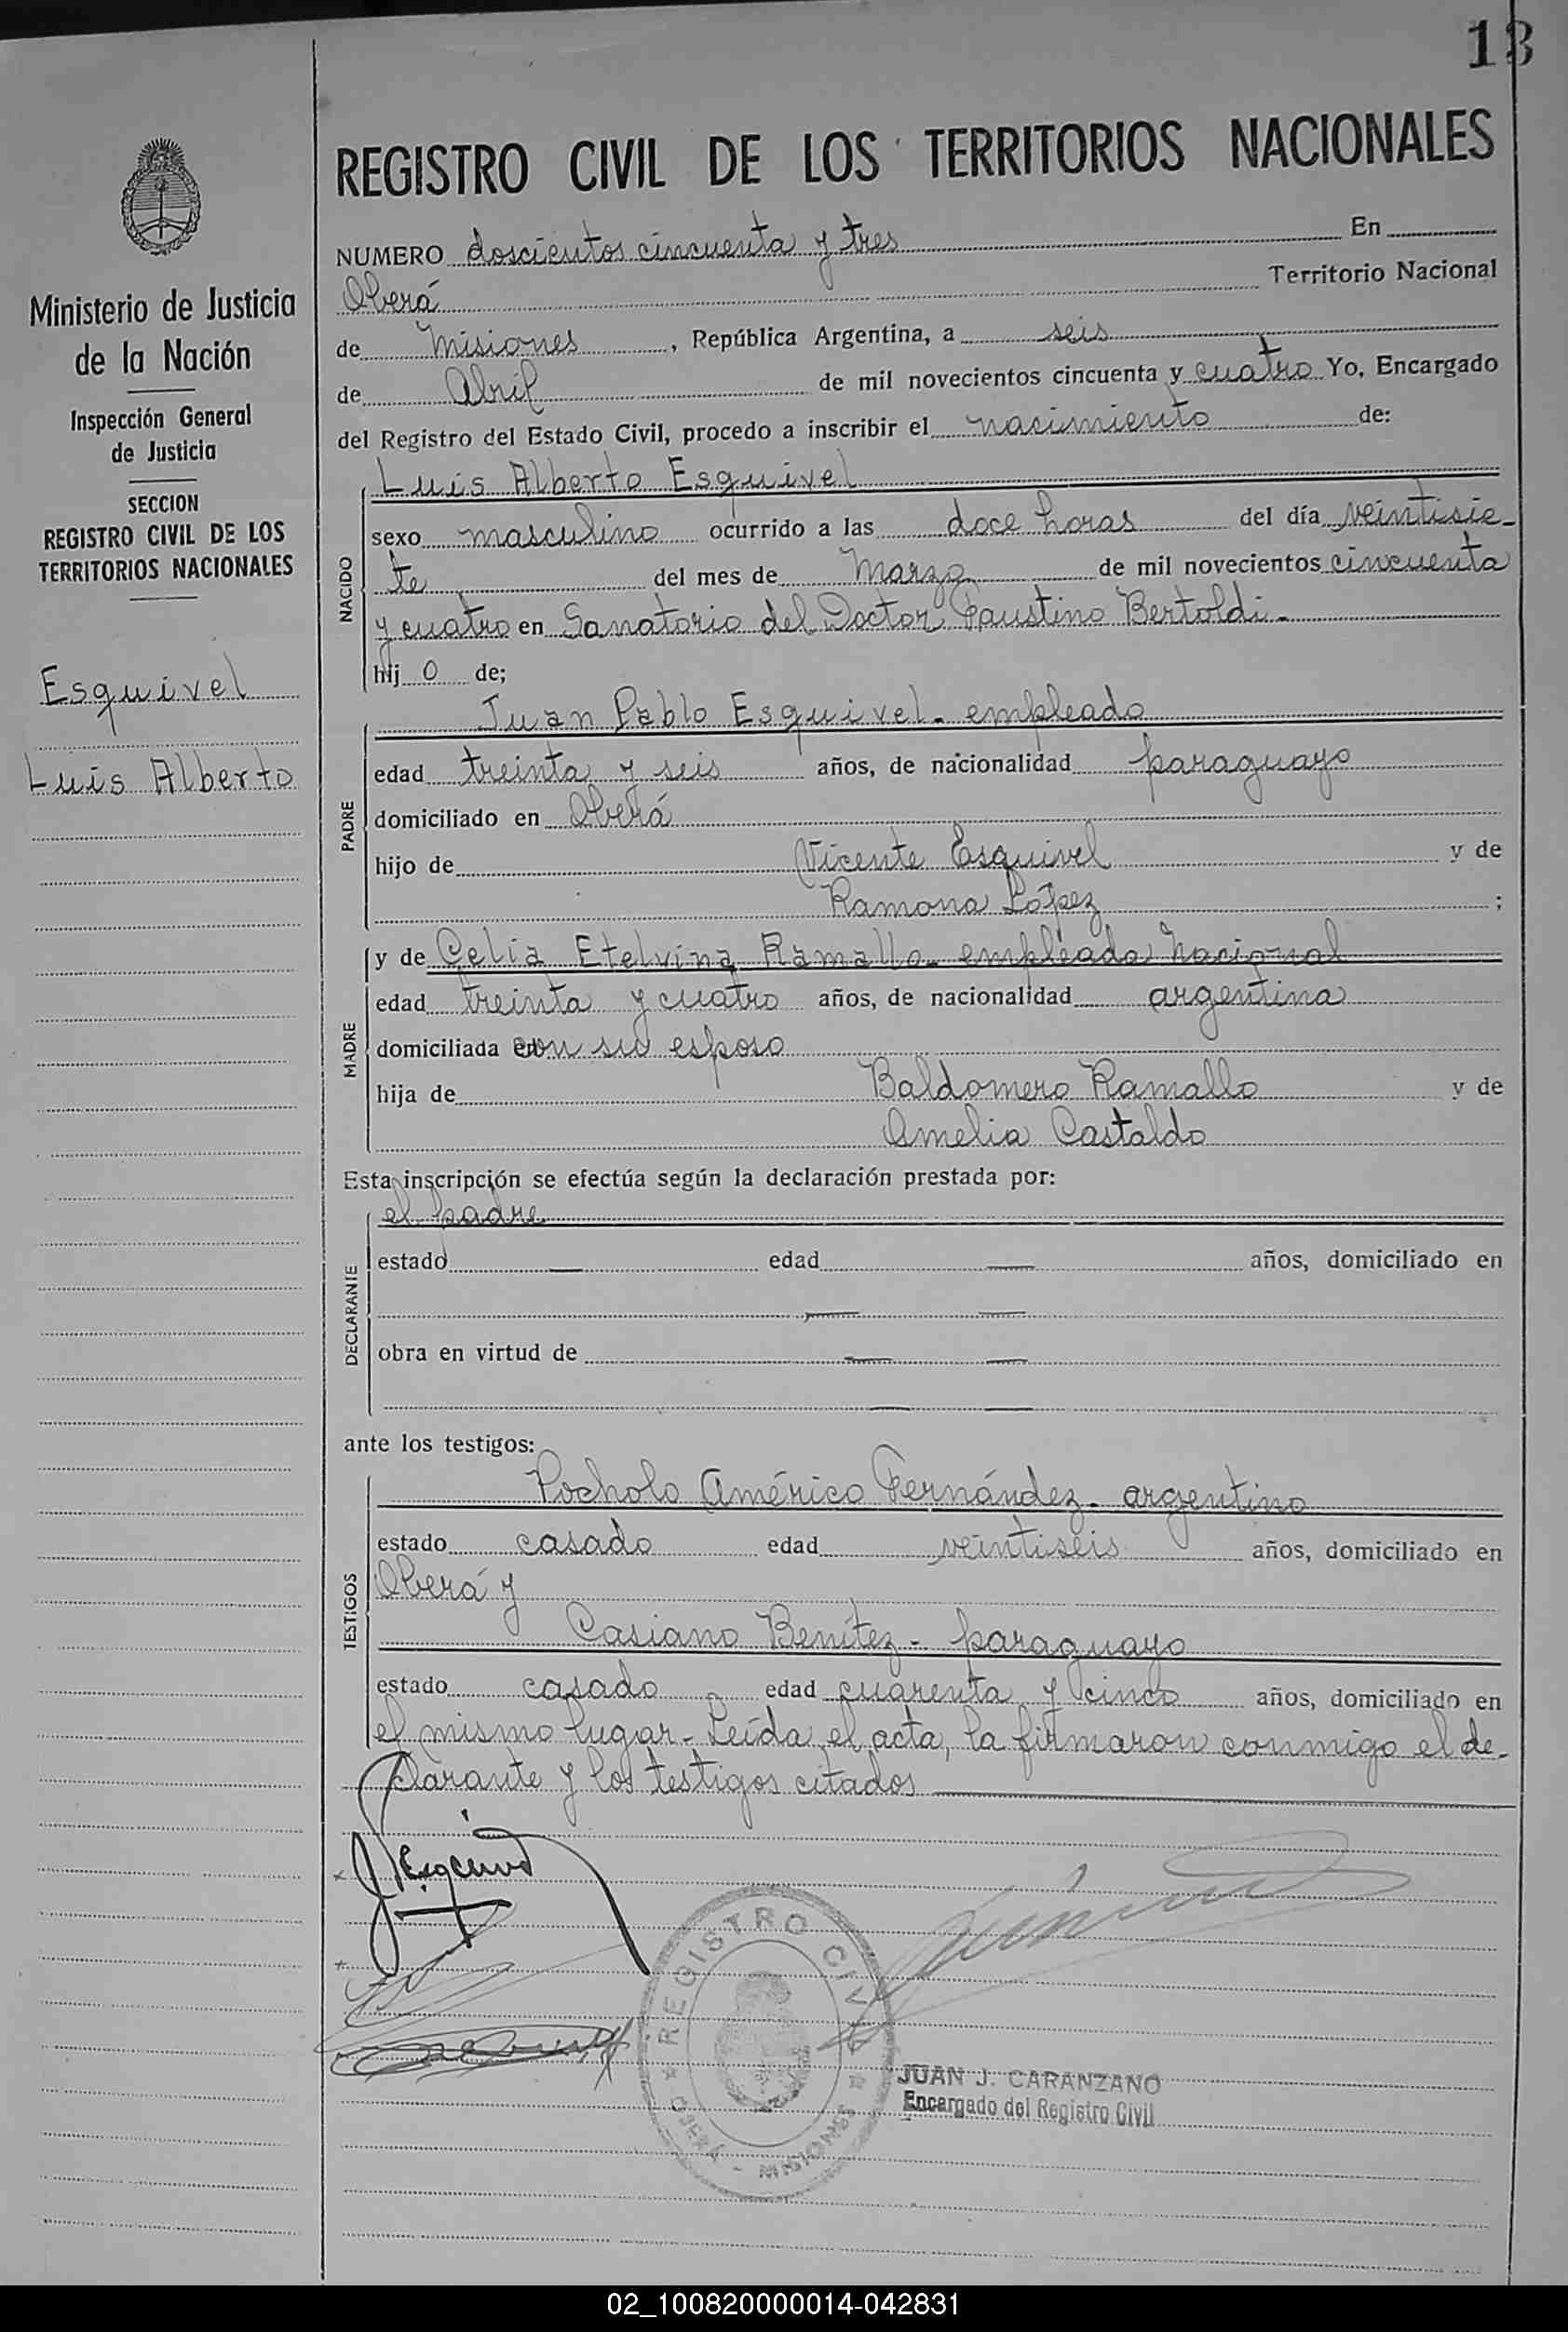 13
REGISTRO CIVIL DE LOS TERRITORIOS NACIONALES
Ministerio de Justicia
de la Nación
Inspección General
de Justicia
SECCION
REGISTRO CIVIL DE LOS
TERRITORIOS NACIONALES
Esquivel
Luis Alberto
NUMERO doscientos cincuenta y tres En
Oberá Territorio Nacional
de Misiones, República Argentina, a seis
de Abril de mil novecientos cincuenta y cuatro Yo, Encargado
del Registro del Estado Civil, procedo a inscribir el nacimiento de:
NACIDO
Luis Alberto Esquivel
sexo masculino ocurrido a las doce horas del día veintisie-
te del mes de Marzo de mil novecientos cincuenta
y cuatro en Sanatorio del Doctor Faustino Bertoldi.
hij o de;
PADRE
Juan Pablo Esquivel - empleado
edad treinta y seis años, de nacionalidad paraguayo
domiciliado en Oberá
hijo de Vicente Esquivel y de
Ramona López ;
MADRE
y de Celia Etelvina Ramallo - empleada Nacional
edad treinta y cuatro años, de nacionalidad argentina
domiciliada en con su esposo
hija de Baldomero Ramallo y de
Amelia Castaldo
Esta inscripción se efectúa según la declaración prestada por:
DECLARANTE
el padre
estado — edad — años, domiciliado en
— —
obra en virtud de — —
— —
ante los testigos:
TESTIGOS
Pocholo Américo Fernández - argentino
estado casado edad veintiseis años, domiciliado en
Oberá y
Casiano Benítez - paraguayo
estado casado edad cuarenta y cinco años, domiciliado en
el mismo lugar - Leída el acta, la firmaron conmigo el de-
clarante y los testigos citados
J Esquivel
REGISTRO CIVIL
OBERÁ - MISIONES
JUAN J. CARANZANO
Encargado del Registro Civil
02_100820000014-042831